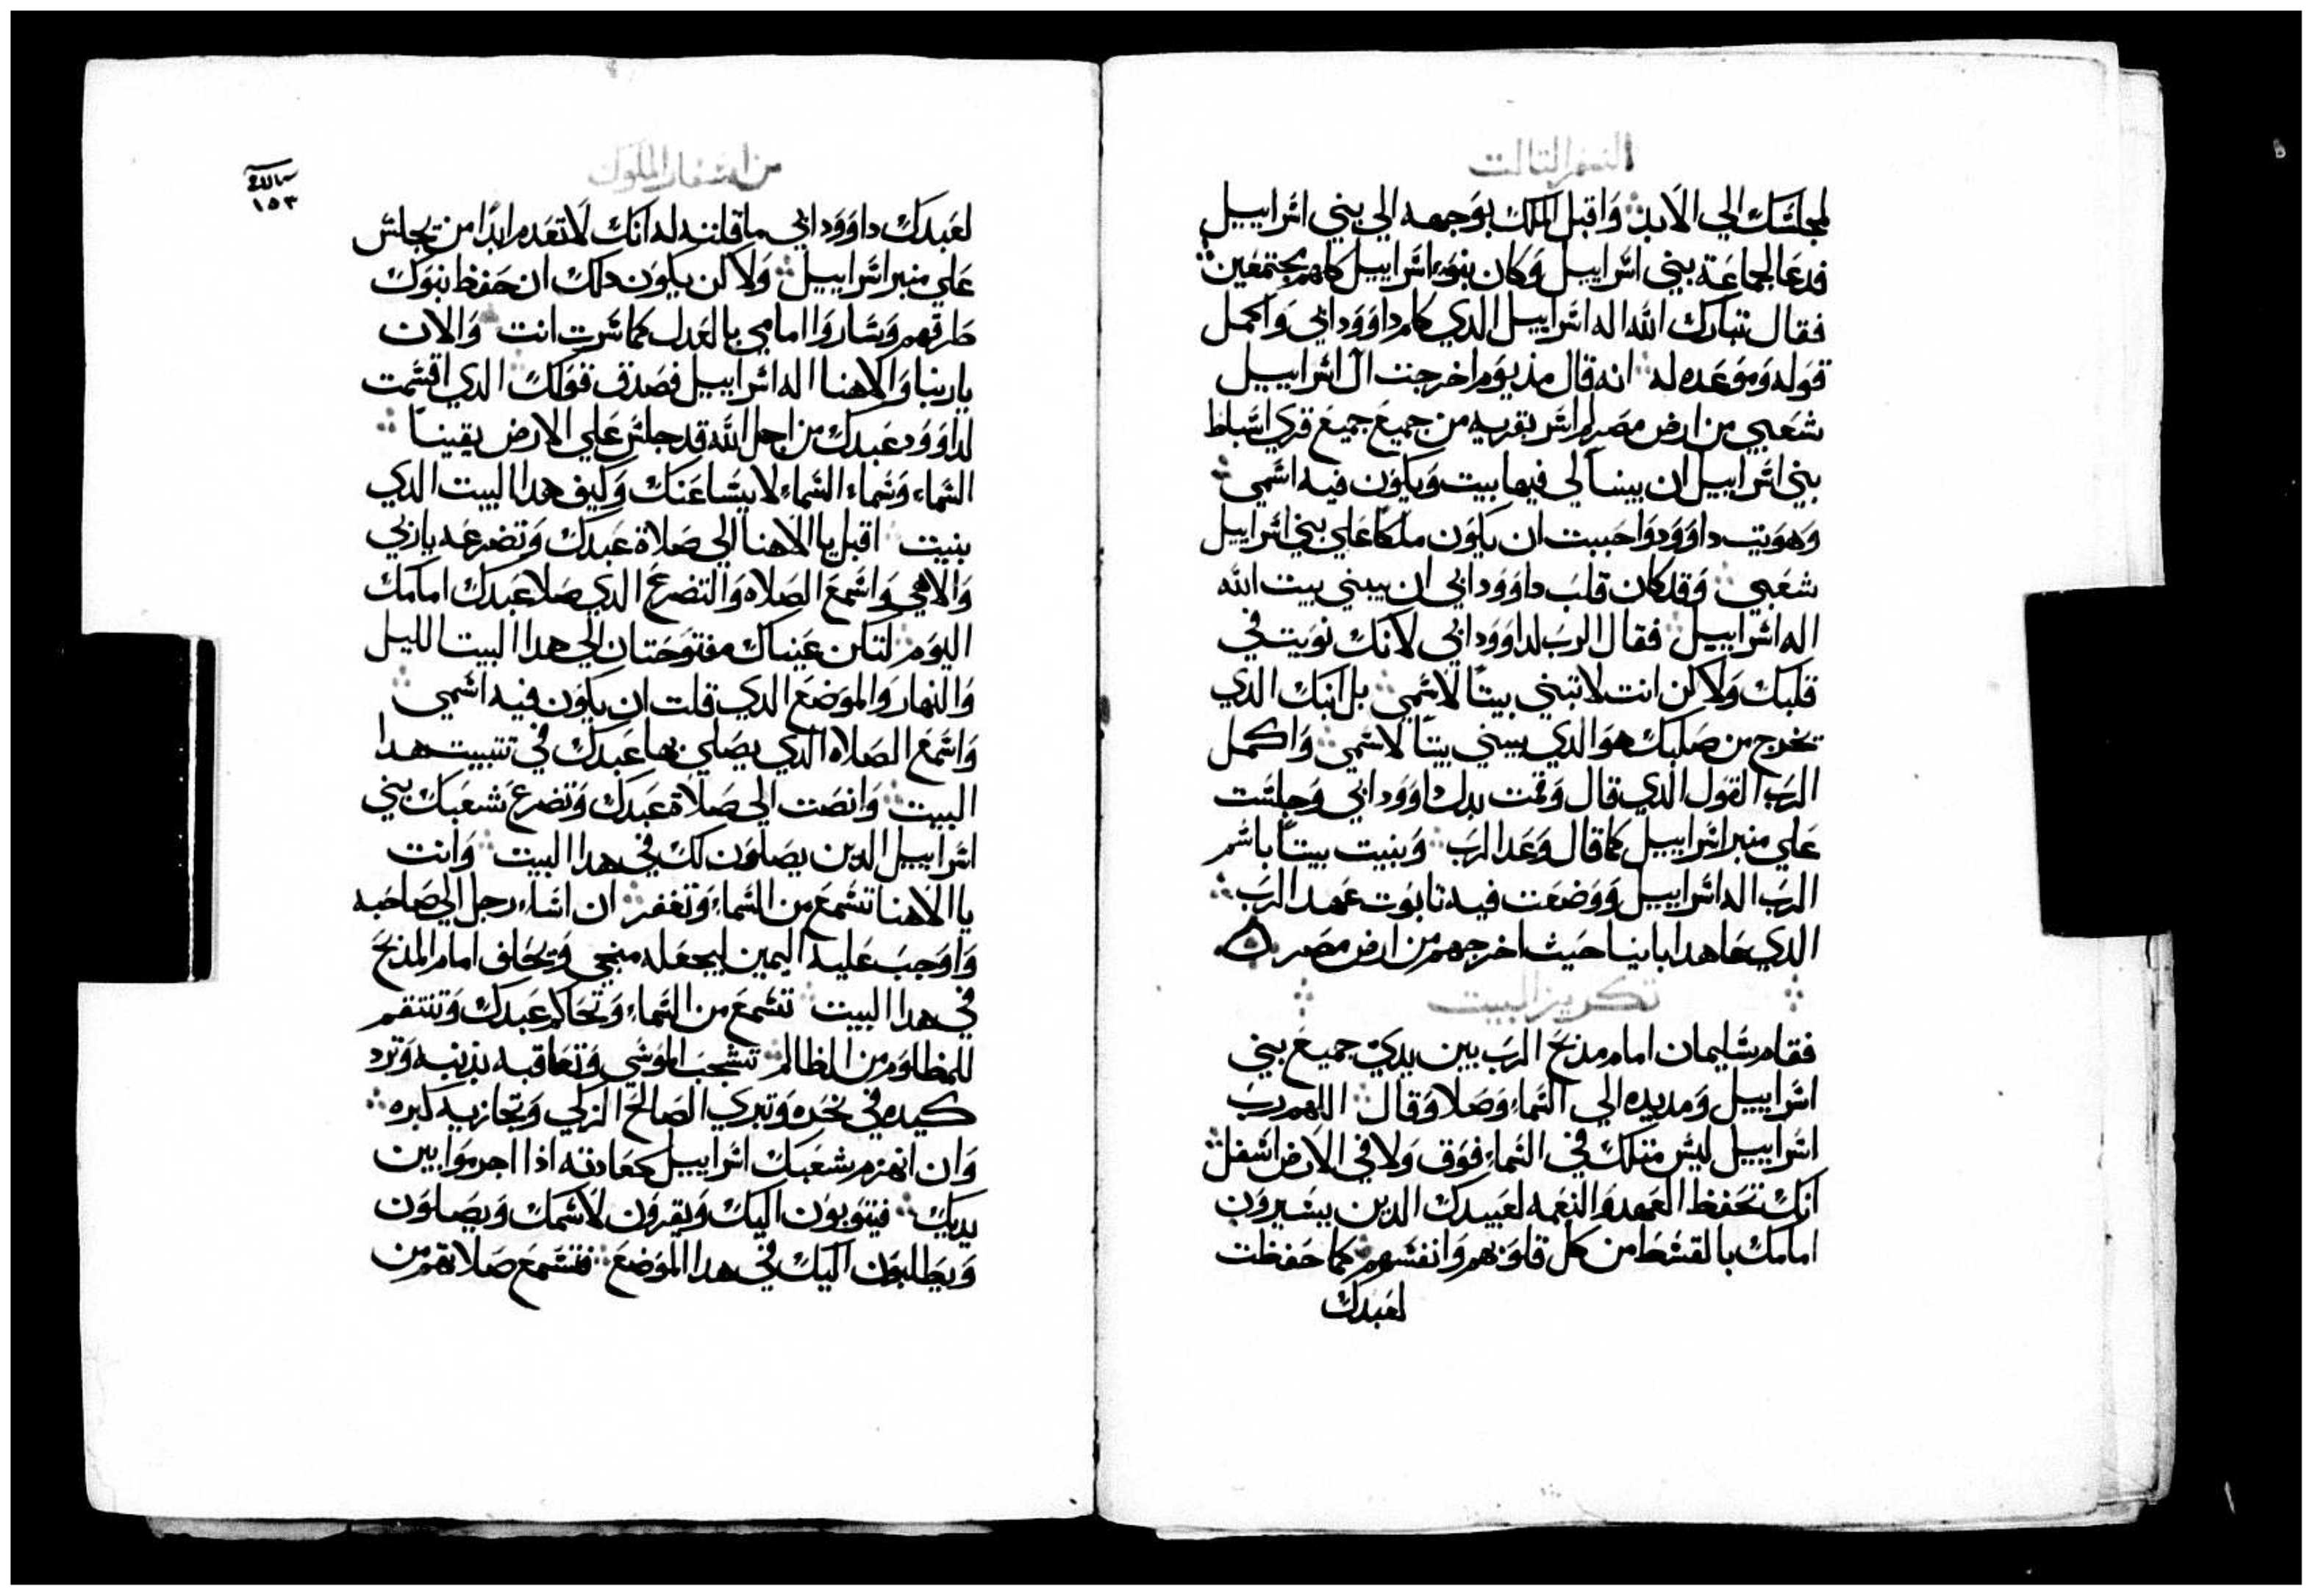 السفر التالت
لمجلسك الي الابد وَاقبل الملك بوَجهه الي بني اسراييل
فدعَا لجماعَة بيني اسراييل وَكان بنوَا اسراييل كلهم مجتمعَين
فقال تبارك الله اله اسراييل الدي كلم داوَوَد ابي وَاكمل
قوَله وَموَعَده له انه قال مذ يوَم اخرجت ال اسراييل
شعَبي من ارض مصَر لم اسر بقريه من جميعَ جميعَ قري اسباط
بني اسراييل ان يبنا لي فيها بيت وَيكوَن فيه اسمي
وَهوَيت داوَوَد وَاحببت ان يكوَن ملكًا عَلي بني اسراييل
شعَبي وَقد كان قلبَ داوَوَد ابي ان يبني بيت الله
اله اسراييل فقال الربَ لداوَوَد ابي لانك نوَيت في
قلبك وَلاكن انت لا تبني بيتًا لاسمي بل ابنك الدي
يخرج من صَلبك هوَ الدي يبني بيتًا لاسمي وَاكمل
الربَ القوَل الدي قال وَقمت بدل داوَوَد ابي وَجلسَت
عَلي منبر اسراييل كما قال وَعَد الربَ وَبنيت بيتًا باسم
الربَ اله اسراييل وَوَضعَت فيه تابوَت عَهد الربَ
الدي عَاهد ابانيا حَيث اخرجهم من ارض مصَر ه
تكريز البيت
فقام سَليمان امام مذبحَ الربَ بين يديَ جميعَ بني
اسراييل وَمد يده الي السَماء وَصَلا وَقال اللهم ربَ
اسراييل ليسَ متلك في السَماء فوَق وَلا في الارض اسَفل
انك تحَفظ العَهد وَالنعَمه لعَبيدك الدين يسَيروَن
امامك بالقسَط من كل قلوَبهم وَانفسَهم كما حَفظت
لعَبدك
من اسَفار الملوَك
١٥٣
لعَبدك داوَوَد ابي ما قلته له انك لا تعَدم ابدًا من يجلسَ
عَلي منبر اسَراييل وَلاكن يكوَن دلك ان حَفظ بنوَك
طرقهم وَسَاروَا امامي بالعَدل كما سَرت انت وَالان
ياربنا وَالاهنا اله اسَراييل فصَدق قوَلك الدي اقسَمت
لداوَوَد عَبدك من اجل الله قد جلسَ عَلي الارض يقينًا
السَماء وَسَماء السَماء لا يسَاعَنك وَكيف هدا البيت الدي
بنيت اقبل يا الاهنا الي صَلاة عَبدك وَتضرعَه ياربي
وَالاهي وَاسَمعَ الصَلاه وَالتضرعَ الدي صَلا عَبدك امامك
اليوَم لتكن عَيناك مفتوَحَتان الي هدا البيت الليل
وَالنهار وَالموَضعَ الدي قلت ان يكوَن فيه اسَمي
وَاسَمعَ الصَلاه الدي يصَلي بها عَبدك في تتبيت هدا
البيت وَانصَت الي صَلاة عَبدك وَتضرعَ شعَبك بني
اسَراييل الدين يصَلوَن لك في هدا البيت وَانت
يا الاهنا تسَمعَ من السَماء وَتغفر ان اسَاء رجل الي صَاحَبه
وَاوَجبَ عَليه اليمين ليجعَله منجي وَيحَلف امام المذبحَ
في هدا البيت تسَمعَ من السَماء وَتحَاكم عَبدك وَتنتقم
للمظلوَم من الظالم تشجبَ الموَسَي وَتعَاقبه بذنبه وَترد
كيده في نحَره وَتبري الصَالحَ الزكي وَتجازيه كبره
وَان انهزم شعَبك اسَراييل كعَادته اذا اجرموَا بين
يديك فيتوَبوَن اليك وَيقروَن لاسَمك وَيصَلوَن
وَيطلبوَن اليك في هدا الموَضعَ فتسَمعَ صَلاتهم من